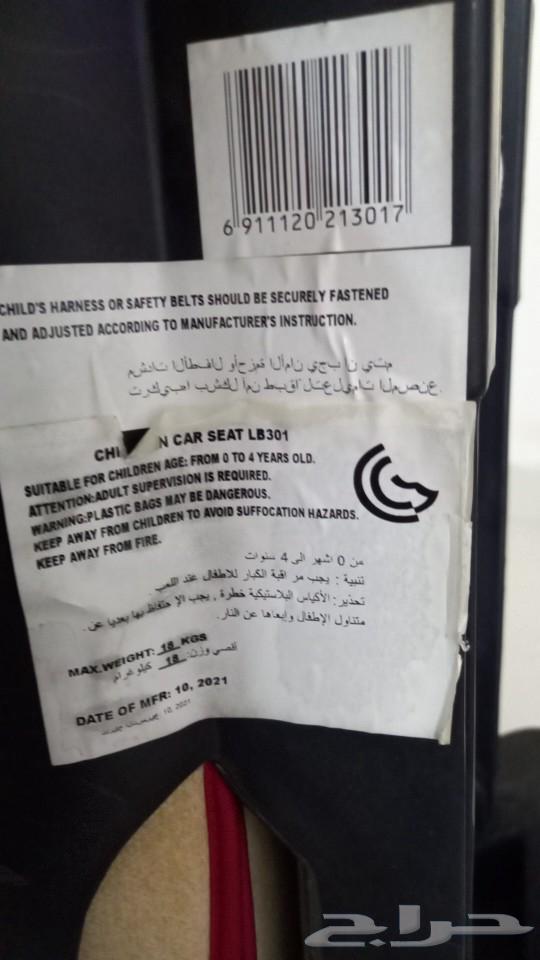 6 911120 213017
CHILD'S HARNESS OR SAFETY BELTS SHOULD BE SECURELY FASTENED
AND ADJUSTED ACCORDING TO MANUFACTURER'S INSTRUCTION.
مشدات الأطفال وأحزمة الأمان يجب ان يتم
تركيبها بشكل أمن طبقا لتعليمات المصنع.
CHI N CAR SEAT LB301
SUITABLE FOR CHILDREN AGE: FROM 0 TO 4 YEARS OLD.
ATTENTION:ADULT SUPERVISION IS REQUIRED.
WARNING:PLASTIC BAGS MAY BE DANGEROUS.
KEEP AWAY FROM CHILDREN TO AVOID SUFFOCATION HAZARDS.
KEEP AWAY FROM FIRE.
من 0 اشهر الى 4 سنوات
تنبية : يجب مر اقبة الكبار للاطفال عند اللعب
تحذير: الأكياس البلاستيكية خطرة , يجب الإ حتفاظ بها بعديا عن.
متناول الإطفال وإبعاها عن النار.
MAX.WEIGHT: 18 KGS
أقصي وزن: 18 كيلو غرام
DATE OF MFR: 10, 2021
10, 2021
حراج